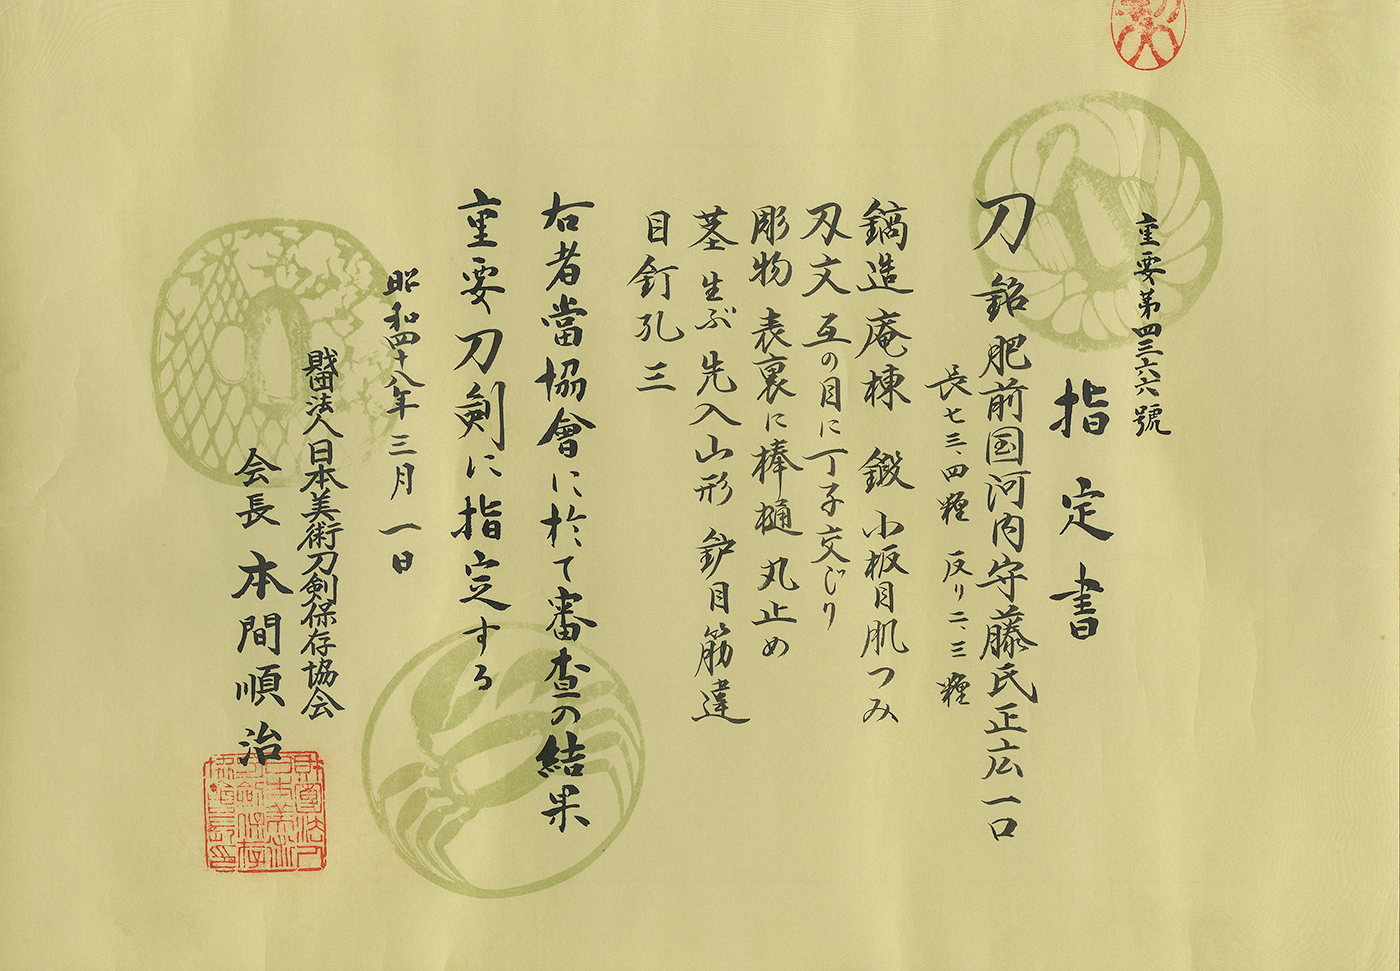 重要第四三六六號
指定書
刀 銘 肥前国河内守藤氏正広 一口
長 七三、四糎 反リ 二、三糎
鎬造 庵棟 鍛 小板目肌つみ
刃文 互の目に丁子交じり
彫物 表裏に棒樋 丸止め
茎 生ぶ 先入山形 鈩目筋違
目釘孔 三
右者當協會に於て審査の結果
重要刀剣に指定する
昭和四十八年三月一日
財団法人日本美術刀剣保存協会
会長 本間順治
財團法人日本美術刀劍保存協會長印